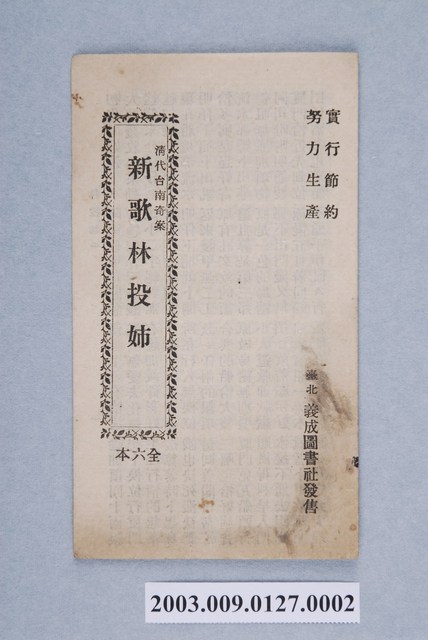 實行節約
努力生產
臺北 義成圖書社發售
清代台南奇案
新歌林投姉
全六本
2003.009.0127.0002